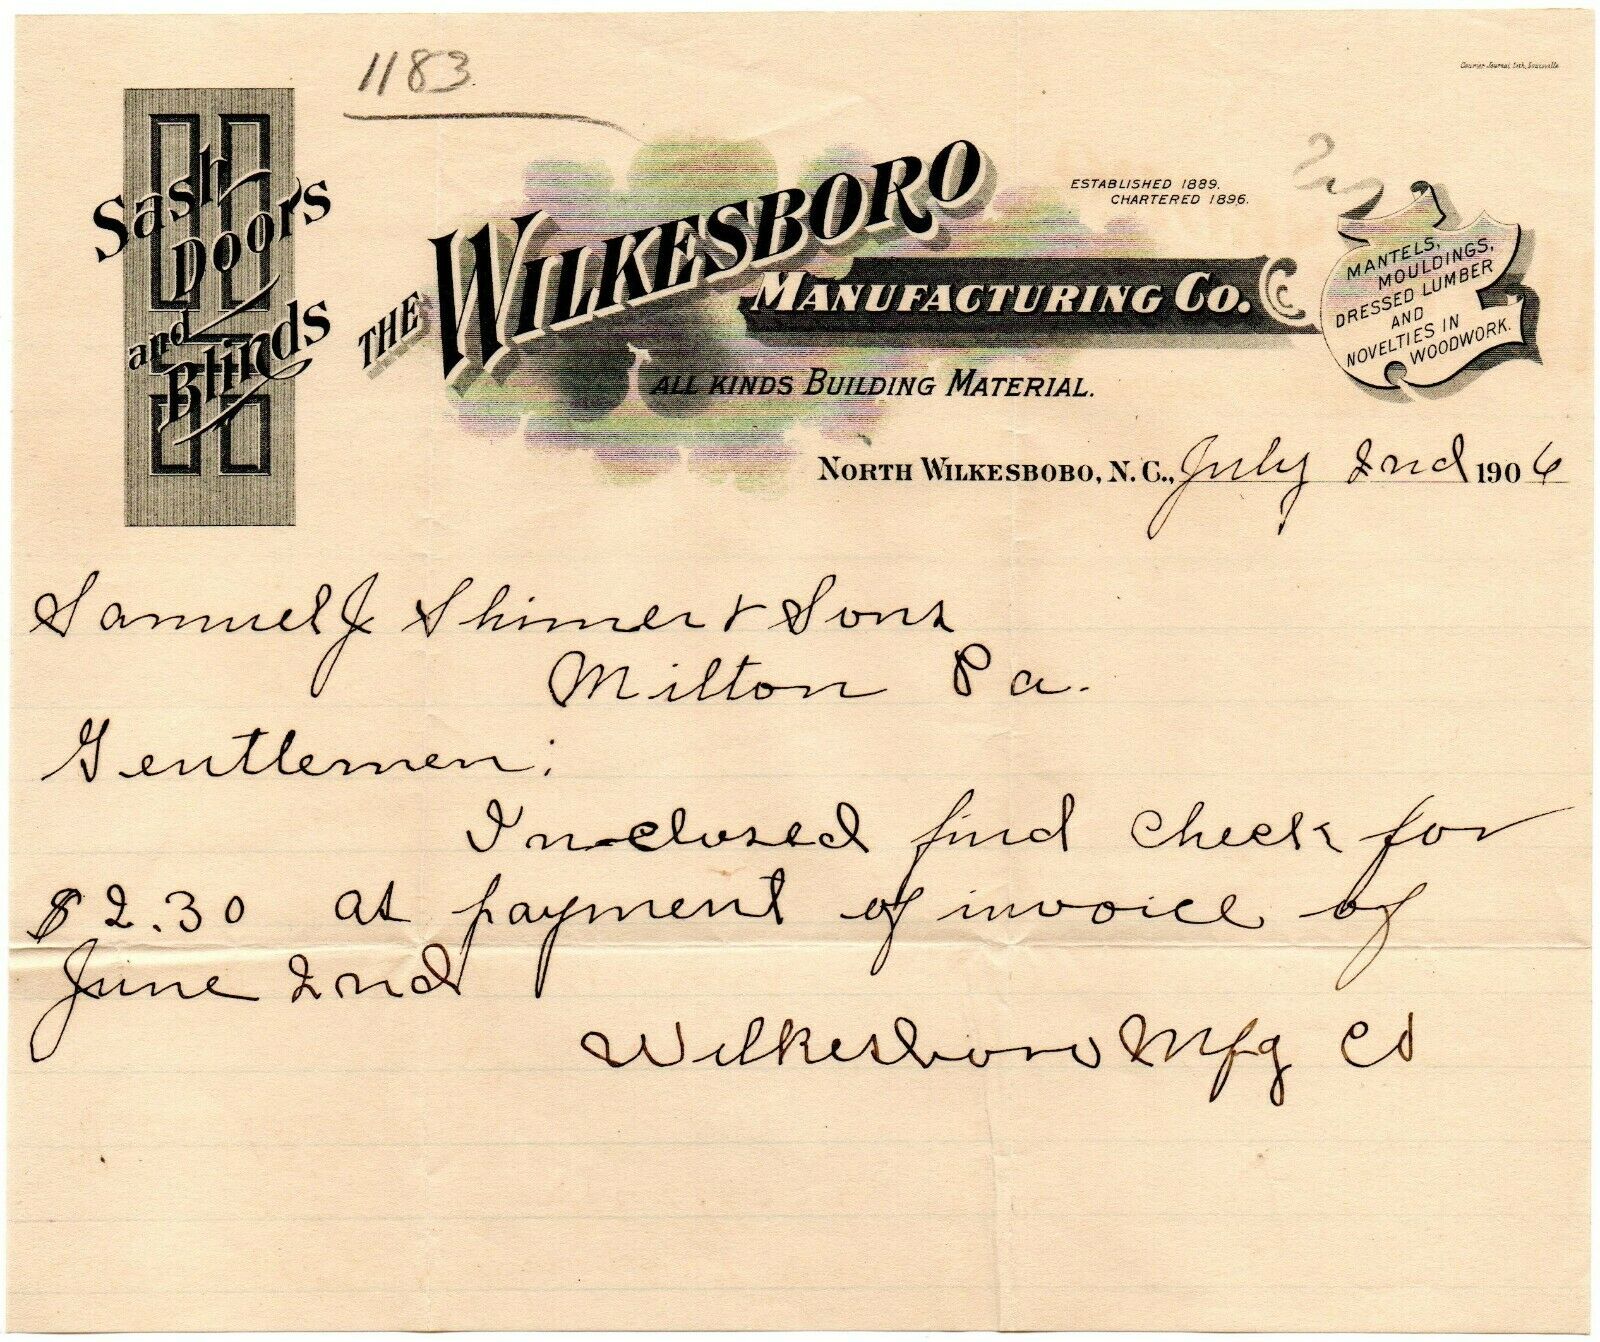 1183
Courier-Journal Lith, Louisville
Sash
Doors
and
Blinds
THE WILKESBORO
MANUFACTURING CO.
ALL KINDS BUILDING MATERIAL.
ESTABLISHED 1889.
CHARTERED 1896.
MANTELS,
MOULDINGS,
DRESSED LUMBER
AND
NOVELTIES IN
WOODWORK.
NORTH WILKESBOBO, N. C., July 2nd 1906
Samuel J Shimer & Sons
Milton Pa.
Gentlemen:
Inclosed find check for
$2.30 as payment of invoice of
June 2nd
Wilkesboro Mfg Co